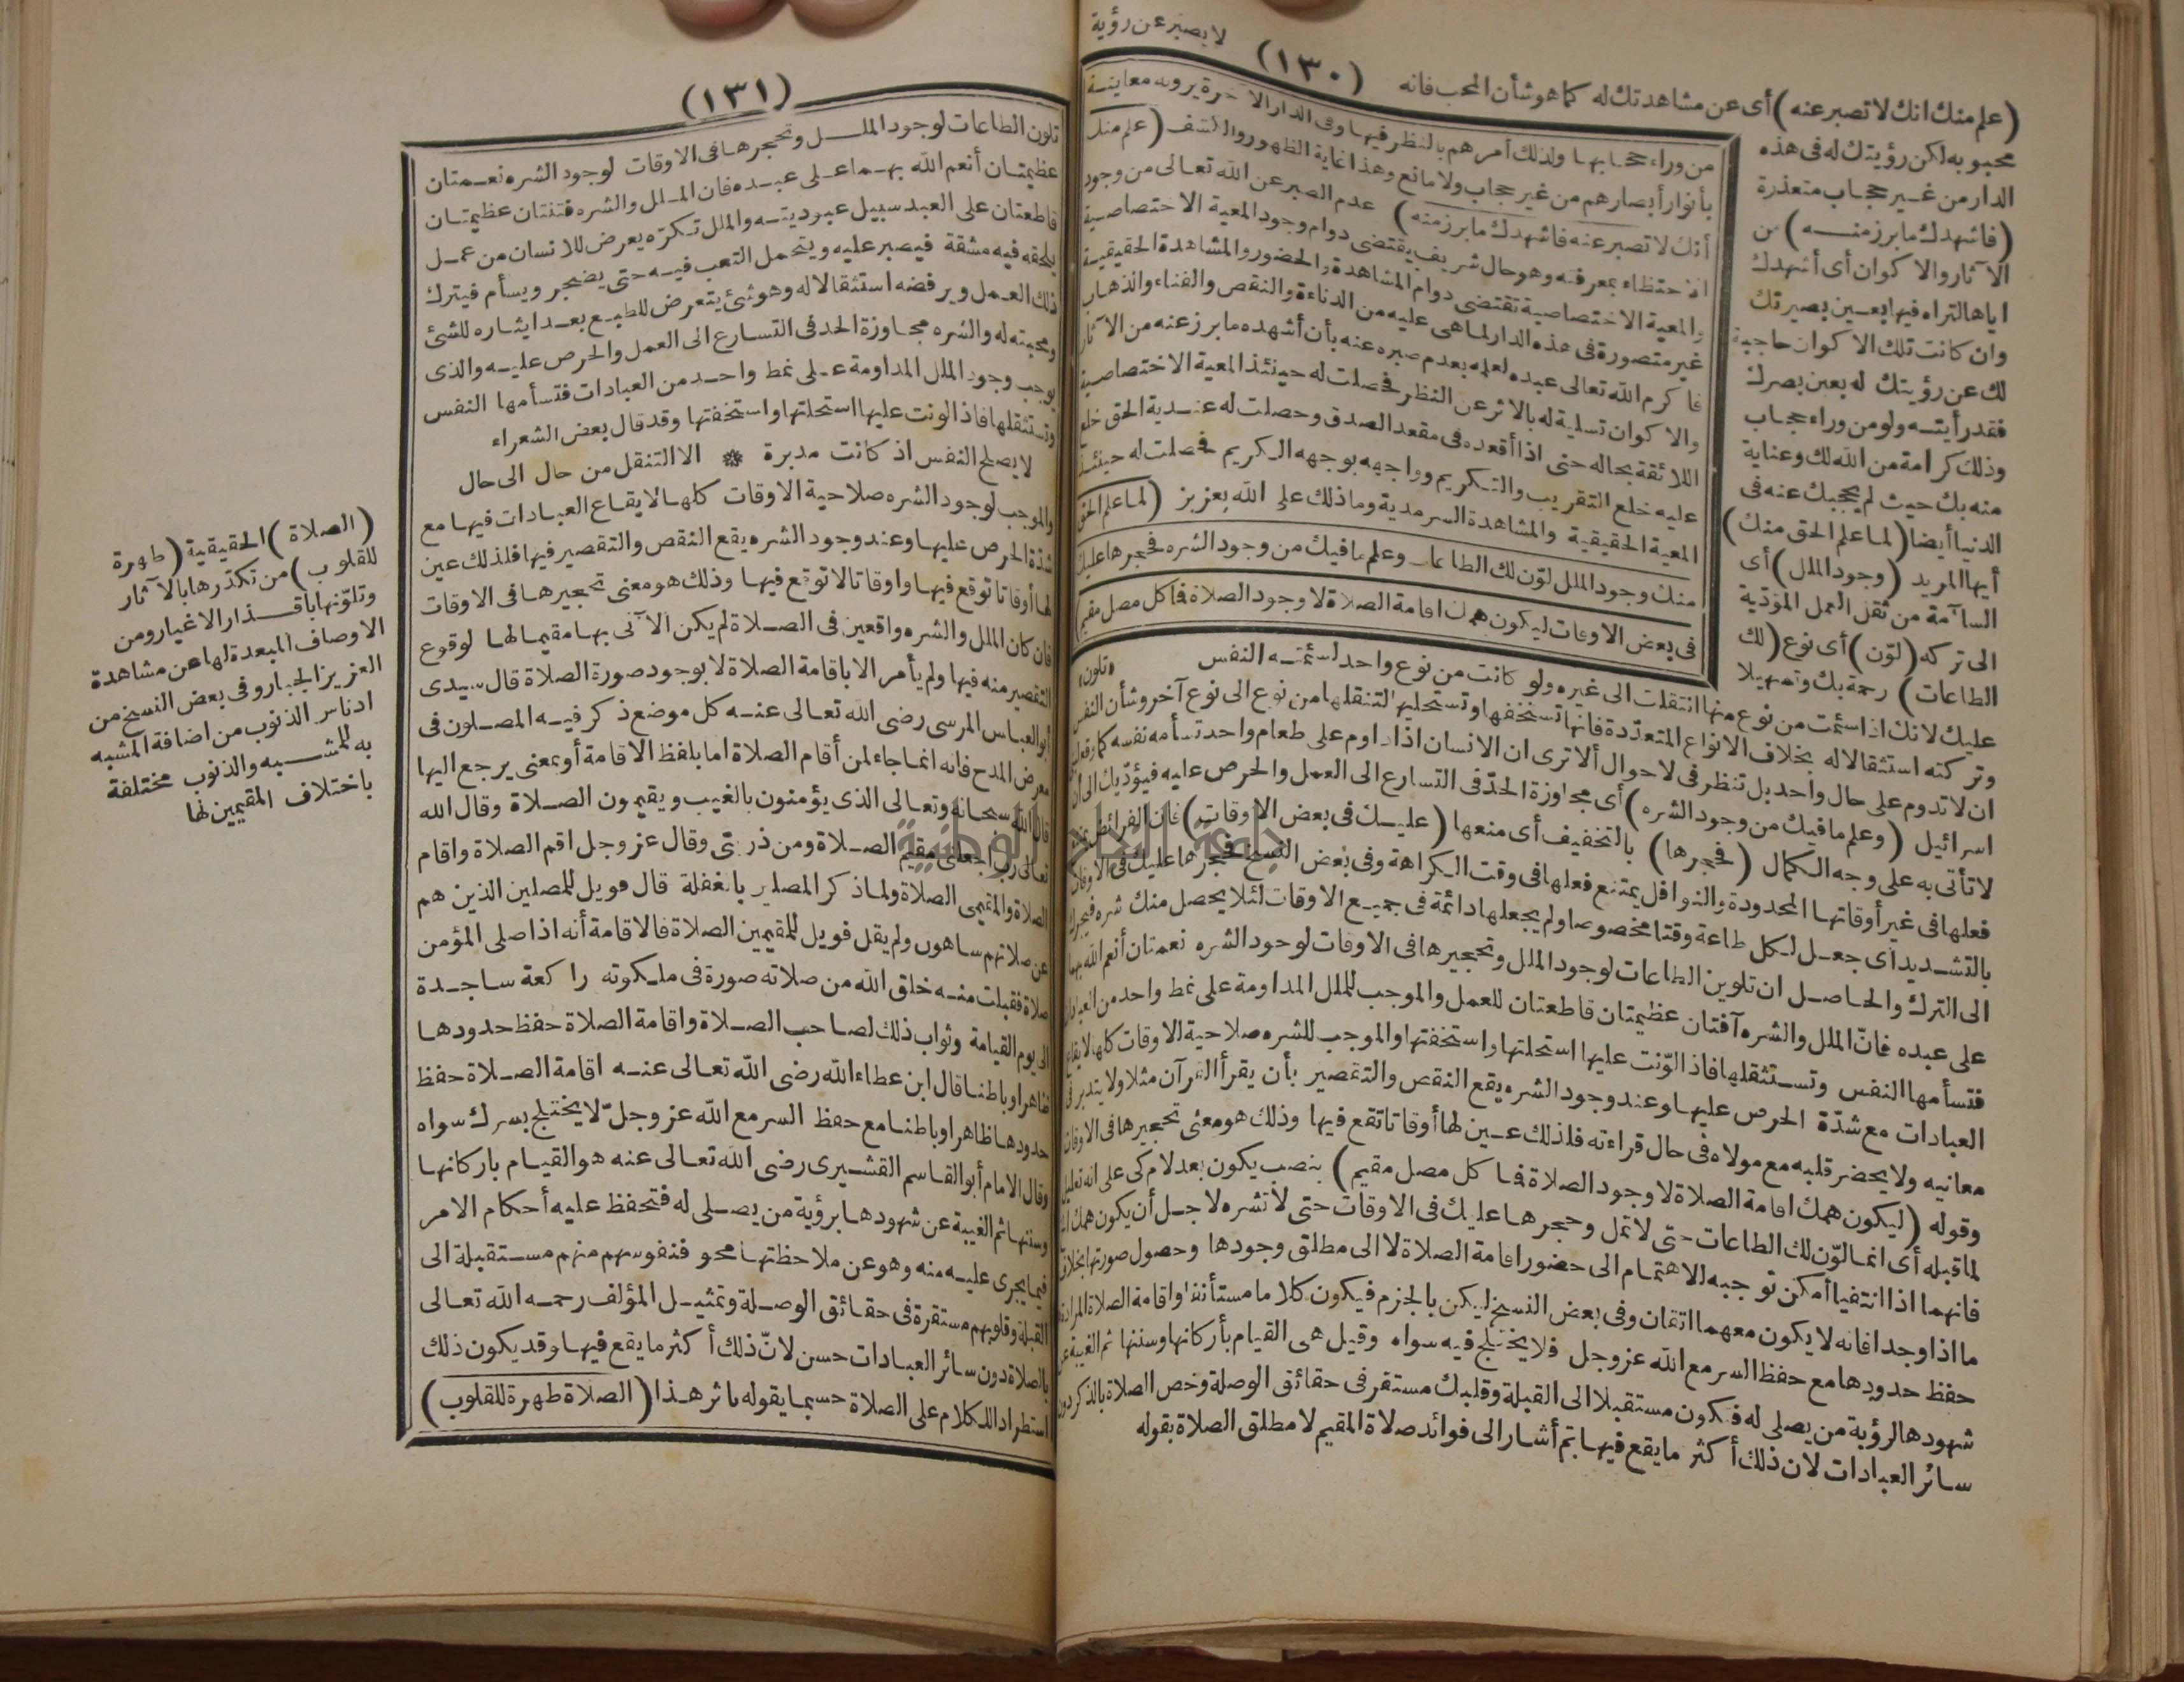 (١٣٠)
(علم منك انك لا تصبر عنه) أى عن مشاهدتك له كما هو شأن المحب فانه
لا يصبر عن رؤية
محبوبه لكن رؤيتك له فى هذه
الدار من غير حجاب متعذرة
(فاشهدك ما برز منه) من
الآثار والاكوان أى أشهدك
اياها لتراه فيها بعين بصيرتك
وان كانت تلك الاكوان حاجبة
لك عن رؤيتك له بعين بصرك
فقد رأيته ولو من وراء حجاب
وذلك كرامة من الله لك وعناية
منه بك حيث لم يحجبك عنه فى
الدنيا أيضا (لما علم الحق منك)
أيها المريد (وجود الملل) أى
السآمة من ثقل العمل المؤدية
الى تركه (لوّن) أى نوع (لك
الطاعات) رحمة بك وتسهيلا
من وراء حجابها ولذلك أمرهم بالنظر فيها وفى الدار الآخرة يرونه معاينة
بأنوار أبصارهم من غير حجاب ولا مانع وهذا غاية الظهور والكشف (علم منك
أنك لا تصبر عنه فاشهدك ما برز منه) عدم الصبر عن الله تعالى من وجود
الاحتظاء بمعرفته وهو حال شريف يقتضى دوام وجود المعية الاختصاصية
والمعية الاختصاصية تقتضى دوام المشاهدة والحضور والمشاهدة الحقيقية
غير متصورة فى هذه الدار لما هى عليه من الدناءة والنقص والفناء والذهاب
فاكرم الله تعالى عبده لعلمه بعدم صبره عنه بأن أشهده ما برز عنه من الآثار
والاكوان تسلية له بالاثر عن النظر فحصلت له حينئذ المعية الاختصاصية
اللائقة بحاله حتى اذا أقعده فى مقعد الصدق وحصلت له عندية الحق خلع
عليه خلع التقريب والتكريم وواجهه بوجهه الكريم فحصلت له حينئذ
المعية الحقيقية والمشاهدة السرمدية وما ذلك على الله بعزيز (لما علم الحق
منك وجود الملل لوّن لك الطاعات وعلم ما فيك من وجود الشره فحجرها عليك
فى بعض الاوقات ليكون همك اقامة الصلاة لا وجود الصلاة فما كل مصل مقيم)
«تلون»
عليك لانك اذا سئمت من نوع منها انتقلت الى غيره ولو كانت من نوع واحد لسئمته النفس
وتركته استثقالا له بخلاف الانواع المتعدّدة فانها تستخفها وتستحليها لتنقلها من نوع الى نوع آخر وشأن النفس
ان لا تدوم على حال واحد بل تنظر فى لاحوال ألا ترى ان الانسان اذا داوم على طعام واحد تسأمه نفسه كما وقع لبنى
اسرائيل (وعلم ما فيك من وجود الشره) أى مجاوزة الحدّ فى التسارع الى العمل والحرص عليه فيؤدّيك الى أن
لا تأتى به على وجه الكمال (فحجرها) بالتخفيف أى منعها (عليك فى بعض الاوقات) فان الفرائض يمتنع
فعلها فى غير أوقاتها المحدودة والنوافل يمتنع فعلها فى وقت الكراهة وفى بعض النسخ فحجرها عليك فى الاوقات
بالتشديد أى جعل لكل طاعة وقتا مخصوصا ولم يجعلها دائمة فى جميع الاوقات لئلا يحصل منك شره فيجرك
الى الترك والحاصل ان تلوين الطاعات لوجود الملل وتحجيرها فى الاوقات لوجود الشره نعمتان أنعم الله بهما
على عبده فانّ الملل والشره آفتان عظيمتان قاطعتان للعمل والموجب للملل المداومة على نمط واحد من العبادات
فتسأمها النفس وتستثقلها فاذا لوّنت عليها استحلتها واستخفتها والموجب للشره صلاحية الاوقات كلها لايقاع
العبادات مع شدّة الحرص عليها وعند وجود الشره يقع النقص والتقصير بأن يقرأ القرآن مثلا ولا يتدبر فى
معانيه ولا يحضر قلبه مع مولاه فى حال قراءته فلذلك عين لها أوقاتا تقع فيها وذلك هو معنى تحجيرها فى الاوقات
وقوله (ليكون همك اقامة الصلاة لا وجود الصلاة فما كل مصل مقيم) بنصب يكون بعد لام كى على انه تعليل
لما قبله أى انما لوّن لك الطاعات حتى لا تمل وحجرها عليك فى الاوقات حتى لا تشره لاجل أن يكون همك الخ
فانهما اذا انتفيا أمكن توجبه الاهتمام الى حضور اقامة الصلاة لا الى مطلق وجودها وحصول صورتها بخلاف
ما اذا وجدا فانه لا يكون معهما اتقان وفى بعض النسخ ليكن بالجزم فيكون كلاما مستأنفا واقامة الصلاة المراد
حفظ حدودها مع حفظ السر مع الله عز وجل فلا يختلج فيه سواه وقيل هى القيام بأركانها وسننها ثم الغيبة عن
شهودها لرؤية من يصلى له فتكون مستقبلا الى القبلة وقلبك مستقر فى حقائق الوصلة وخص الصلاة بالذكر دون
سائر العبادات لان ذلك أكثر ما يقع فيها ثم أشار الى فوائد صلاة المقيم لا مطلق الصلاة بقوله
(١٣١)
تلون الطاعات لوجود الملل وتحجرها فى الاوقات لوجود الشره نعمتان
عظيمتان أنعم الله بهما على عبده فان الملل والشره فتنتان عظيمتان
قاطعتان على العبد سبيل عبوديته والملل تكرّه يعرض للانسان من عمل
يلحقه فيه مشقة فيصبر عليه ويتحمل التعب فيه حتى يضجر ويسأم فيترك
ذلك العمل ويرفضه استثقالا له وهو شئ يتعرض للطبع بعد ايثاره للشئ
ومحبته له والشره مجاوزة الحد فى التسارع الى العمل والحرص عليه والذى
يوجب وجود الملل المداومة على نمط واحد من العبادات فتسأمها النفس
وتستثقلها فاذا لونت عليها استحلتها واستخفتها وقد قال بعض الشعراء
لا يصلح النفس اذ كانت مدبرة * الا التنقل من حال الى حال
والموجب لوجود الشره صلاحية الاوقات كلها لايقاع العبادات فيها مع
شدّة الحرص عليها وعند وجود الشره يقع النقص والتقصير فيها فلذلك عين
لها أوقاتا توقع فيها وأوقاتا لا توقع فيها وذلك هو معنى تحجيرها فى الاوقات
فان كان الملل والشره واقعين فى الصلاة لم يكن الآتى بها مقيما لها لوقوع
التقصير منه فيها ولم يأمر الا باقامة الصلاة لا بوجود صورة الصلاة قال سيدى
أبو العباس المرسى رضى الله تعالى عنه كل موضع ذكر فيه المصلون فى
معرض المدح فانه انما جاء لمن أقام الصلاة اما بلفظ الاقامة أو بمعنى يرجع اليها
قال الله سبحانه وتعالى الذى يؤمنون بالغيب ويقيمون الصلاة وقال الله
تعالى رب اجعلنى مقيم الصلاة ومن ذريتى وقال عز وجل اقم الصلاة واقام
الصلاة والمقيمى الصلاة ولما ذكر المصلين بالغفلة قال فويل للمصلين الذين هم
عن صلاتهم ساهون ولم يقل فويل للمقيمين الصلاة فالاقامة أنه اذا صلى المؤمن
صلاة فقبلت منه خلق الله من صلاته صورة فى ملكوته راكعة ساجدة
الى يوم القيامة وثواب ذلك لصاحب الصلاة واقامة الصلاة حفظ حدودها
ظاهرا وباطنا قال ابن عطاء الله رضى الله تعالى عنه اقامة الصلاة حفظ
حدودها ظاهرا وباطنا مع حفظ السر مع الله عز وجلّ لا يختلج بسرك سواه
وقال الامام أبو القاسم القشيرى رضى الله تعالى عنه هو القيام باركانها
وسننها ثم الغيبة عن شهودها برؤية من يصلى له فتحفظ عليه أحكام الامر
فيما يجرى عليه منه وهو عن ملاحظتها محو فنفوسهم منهم مستقبلة الى
القبلة وقلوبهم مستقرة فى حقائق الوصلة وتمثيل المؤلف رحمه الله تعالى
بالصلاة دون سائر العبادات حسن لانّ ذلك أكثر ما يقع فيها وقد يكون ذلك
استطرادا للكلام على الصلاة حسبما يقوله باثر هذا (الصلاة طهرة للقلوب)
(الصلاة) الحقيقية (طهرة
للقلوب) من تكدّرها بالآثار
وتلوّنها باقذار الاغيار ومن
الاوصاف المبعدة لها عن مشاهدة
العزيز الجبار وفى بعض النسخ من
ادناس الذنوب من اضافة المشبه
به للمشبه والذنوب مختلفة
باختلاف المقيمين لها
جامعة النجاح الوطنية